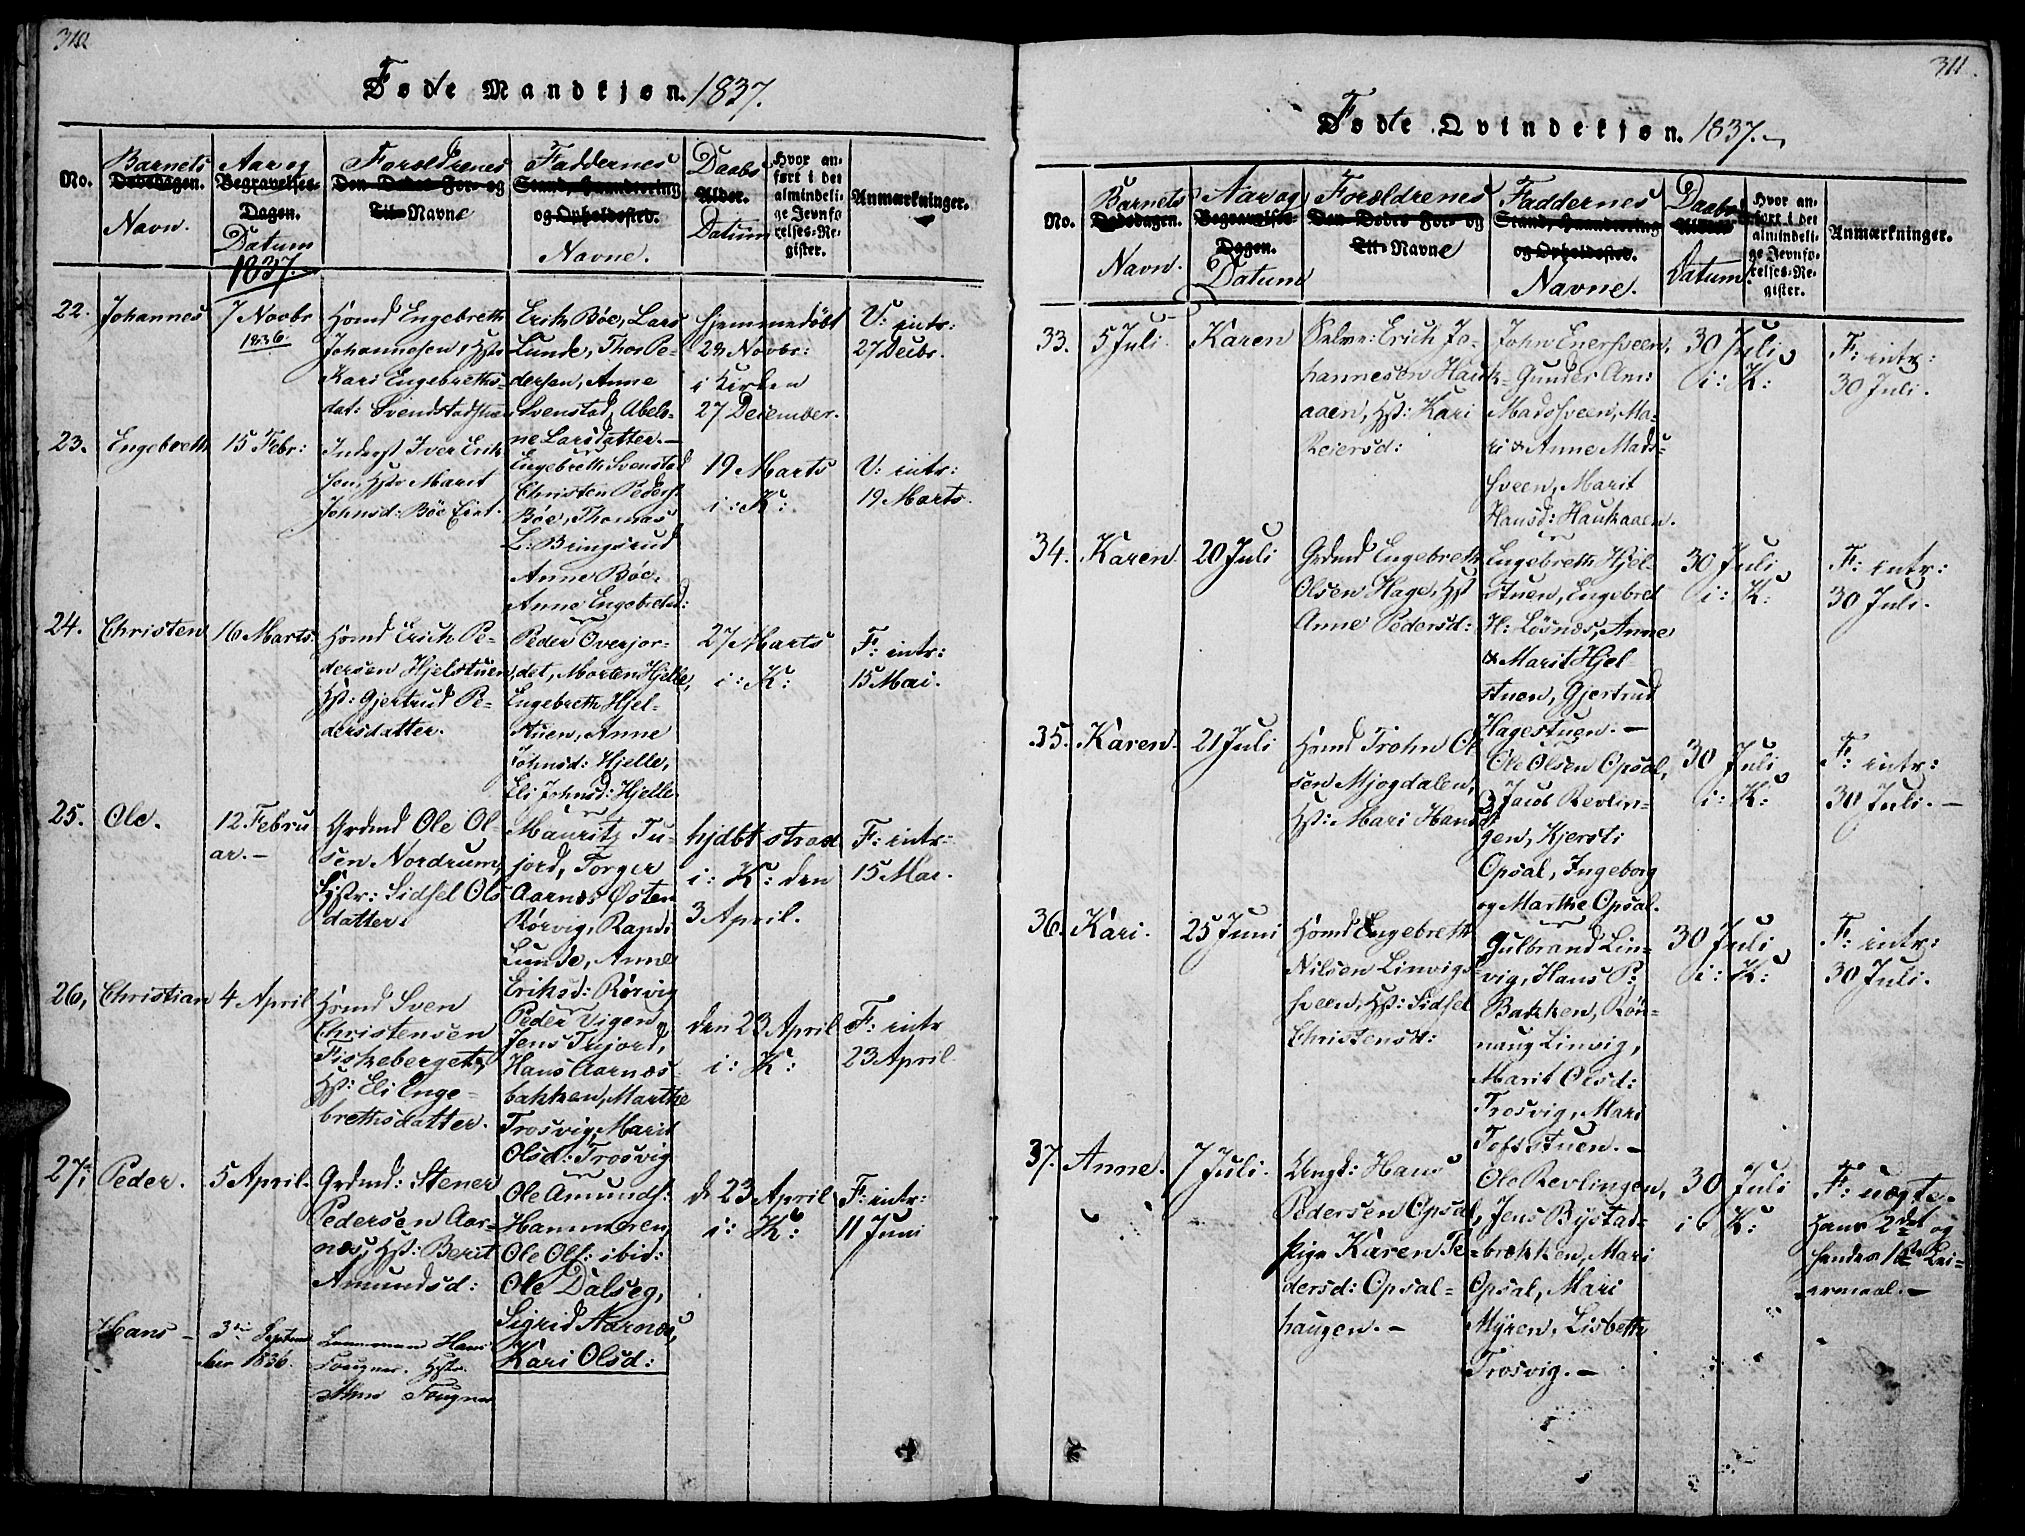 310
Føde Mandkjøn. 1837.
No.
Barnets
Dødsdagen.
Navn.
Aar og
Begravelses-
Dagen.
Datum
Forældrenes
Den Dødes For- og
Til-Navne
Faddernes
Stand, Haandtering
og Opholdssted.
Navne.
Daabs
Alder.
Datum
Hvor an-
ført i det
almindeli-
ge Jevnfø
relses-Re-
gister.
Anmærkninger.
1837.
22.
Johannes
7 Novbr
1836.
Hsmd Engebreth
Johannesen, Hst
Kari Engebreths-
dat:
Erik Böe, Lars
Lunde, Thor Pe-
dersen, Anne
Svenstad, Abelo-
ne Larsdatter.—
hjemmedöbt
28 Novbr:
i Kirken
27 December.
V: intr:
27 Decbr.
23.
Engebreth
15 Febr:
Inderst Iver Erik
sen, Hst: Marit
Johnsd: Böe Eiet.
Engebreth Svenstad
Christen Peders:
Böe, Thomas
L: Bringsrud
Anne Böe,
Anne Engebretsd:
19 Marts
i: K:
V: intr:
19 Marts.
24.
Christen
16 Marts.
Hsmd Erich Pe-
dersen Hjelstuen,
Hst: Gjertrud Pe-
dersdatter.
Peder Overjor-
det, Morten Hjelle,
Engebreth Hjel-
stuen, Anne
Johnsd: Hjelle,
Eli Johnsd: Hjelle
27 Marts
i: K:
F: intr:
15 Mai.
25.
Ole.
12 Febru
ar.—
Grdmd Ole Ol-
sen Nordrum,
Hstr: Sidsel Ols
datter.
Mauritz Tu-
jord, Torger
Aarnes, Østen
Rörvig, Ragni
Lunde, Anne
Eriksd: Rørvig
hjdbt strax
i: K: den
3 April.
F: intr:
15 Mai.
26,
Christian
4 April
Hsmd Sven
Christensen
Fiskeberget,
Hst: Eli Enge-
brethsdatter.
Peder Vigen,
Jens Tujord,
Hans Aarnæs-
bakken, Marthe
Trosvig, Marit
Olsd: Trosvig
den 23 April
i: K:
F: intr
23 April.
27.
Peder.
5 April.
Grdmd: Stener
Pedersen Aar-
næs, Hst: Berit
Amundsd:
Ole Amunds:
Hammeren
Ole Ols: ibid:
Ole Dalseg,
Sigrid Aarnæs,
Kari Olsd:
d 23 April
i: K:
F: intr:
11 Juni
Hans –
3 Septem
ber 1836.
Lensmann Hans
Fougner. Hstr.
Fougner
311.
Føde Qvindekjøn. 1837.
No.
Barnets
Dødsdagen.
Navn.
Aar og
Begravelses-
Dagen.
Datum
Forældrenes
Den Dødes For- og
Til-Navne
Faddernes
Stand, Haandtering
og Opholdssted.
Navne.
Daabs
Alder
Datum.
Hvor an-
ført i det
almindeli-
ge Jevnfø-
relses-Re-
gister.
Anmærkninger.
33.
5 Juli.
Karen
Selvei: Erich Jo-
hannesen Hauk-
aaen, Hst: Kari
Reiersd:
John Enersveen,
Gunder Am:
Madssveen, Ma-
ri & Anne Mads-
sveen, Marit
Hansd: Haukaaen.
30 Juli
i: K:
F: intr:
30 Juli.
34.
Karen
20 Juli
Grdmd Engebreth
Olsen Hage, Hst
Anne Pedersd:
Engebreth Hjel-
stuen, Engebret
H: Løsnes, Anne
& Marit Hjel
stuen, Gjertrud
Hagestuen.—
30 Juli
i: K:
F: intr:
30 Juli.
35.
Karen
21 Juli
Hsmd Trohn Ol
sen Mjogdalen,
Hst: Mari Hansd
Ole Olsen Opsal,
Jacob Revlin-
gen, Kjersti
Opsal, Ingeborg
og Marthe Opsal.
30 Juli
i: K:
F: intr:
30 Juli.—
36.
Kari.
25 Juni
Hsmd Engebreth
Nilsen Linvigs-
sveen, Hst: Sidsel
Christensd:
Gulbrand Lin-
vig, Hans P:
Bakken, Rön-
naug Linvig,
Marit Olsd:
Trosvig, Mari
Toftstuen.—
30 Juli
i: K:
F: intr:
30 Juli.
37.
Anne.
7 Juli.
Ungk: Hans
Pedersen Opsal,
Pige Karen Pe-
dersd: Opsal-
haugen.—
Ole Revlingen,
Jens Bÿstad-
brekken, Mari
Opsal, Mari
Mÿren, Lisbeth
Trosvig.—
30 Juli
i: K:
F: uægte.
Hans 2det og
hendes 1ste Lei-
ermaal.—